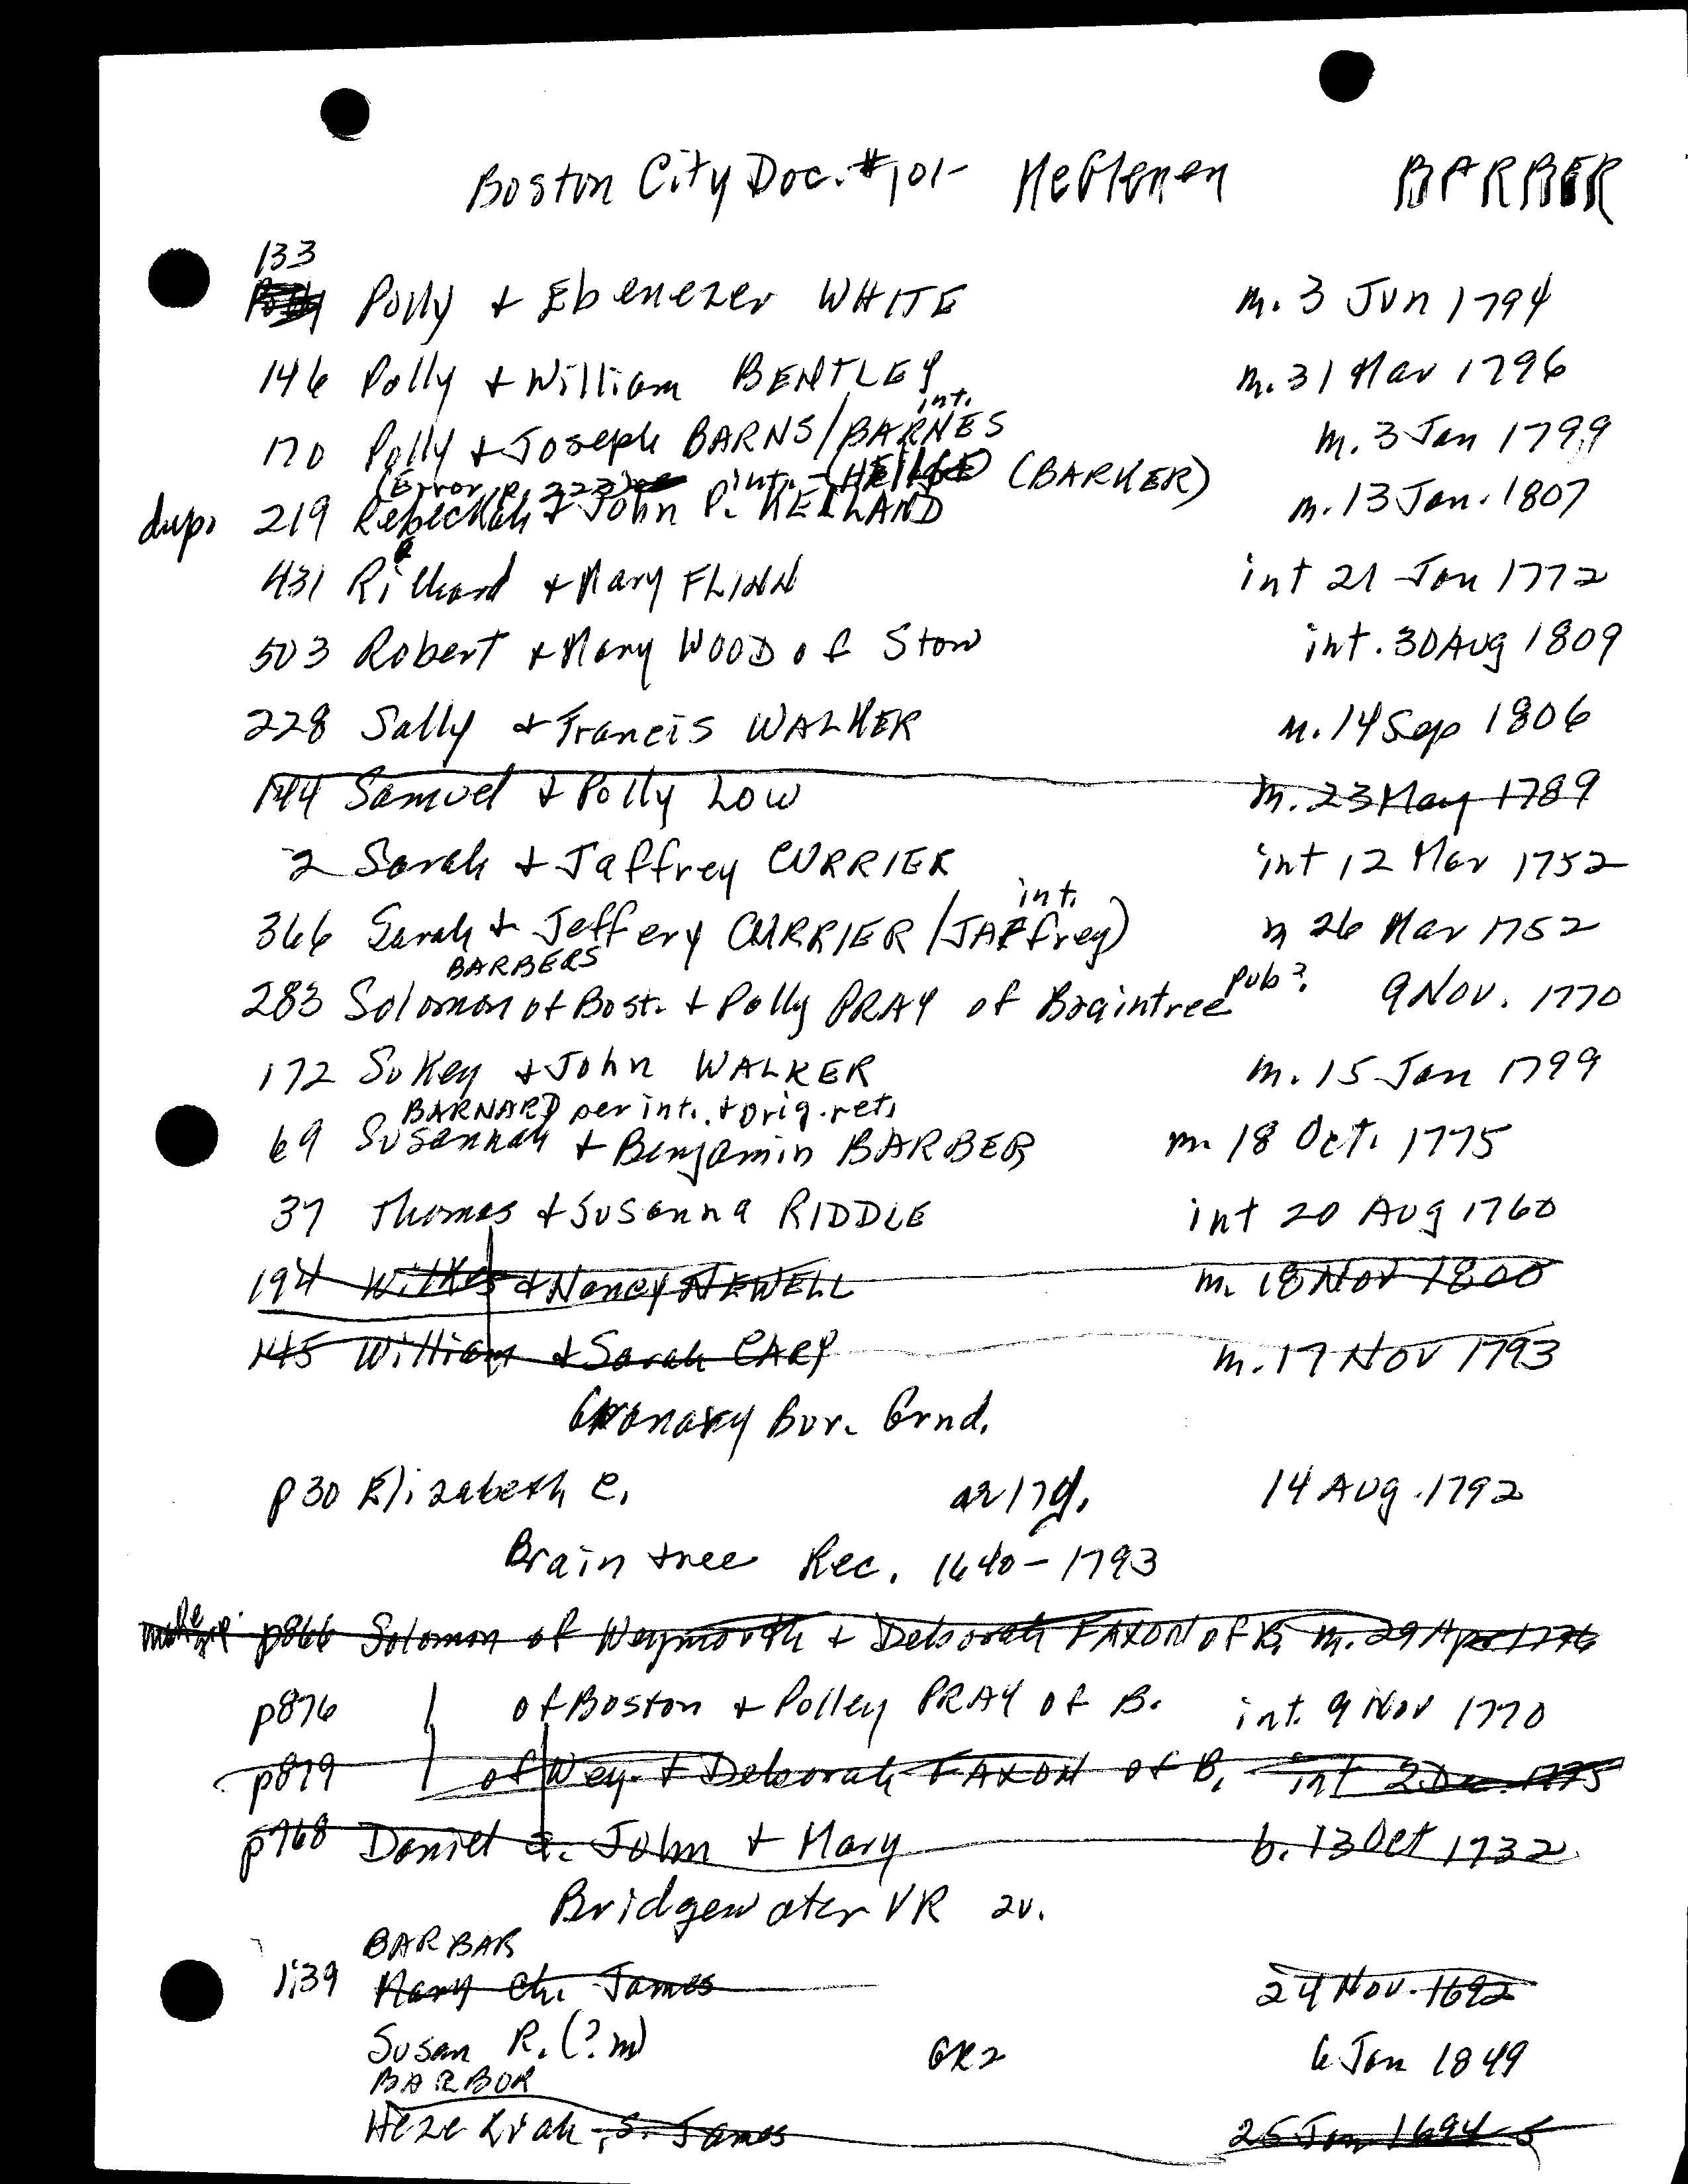 Boston City Doc. #101- McGlenen BARBER
133
Polly & Ebenezer WHITE m. 3 Jun 1794
146 Polly & William BENTLEY m. 31 Mar 1796
int.
170 Polly & Joseph BARNS/BARNES m. 3 Jan 1799
(Error p. 323) int. (BARKER)
dup. 219 Rebeckah & John P. KELLAND m. 13 Jan. 1807
431 Richard & Mary FLINN int 21 Jan 1772
503 Robert & Mary WOOD of Stow int. 30 Aug 1809
228 Sally & Francis WALKER m. 14 Sep 1806
Samuel & Polly LOW m. 23 May 1789
2 Sarah & Jaffrey CURRIER int 12 Mar 1752
int.
366 Sarah & Jeffery CURRIER/JAffrey) m 26 Mar 1752
BARBERS
283 Solomon of Bost. & Polly PRAY of Braintree pub? 9 Nov. 1770
172 Sukey & John WALKER m. 15 Jan 1799
BARNARD per int. & orig. ret.
69 Susannah & Benjamin BARBER m. 18 Oct. 1775
37 Thomas & Susanna RIDDLE int 20 Aug 1760
194 Wilkes & Nancy NEWELL m. 18 Nov 1800
William & Sarah CARY m. 17 Nov 1793
Granary Bur. Grnd.
p30 Elizabeth C. ae 17y. 14 Aug. 1792
Braintree Rec. 1640-1793
p866 Solomon of Weymouth & Deborah FAXON of B. m. 29 Apr 1776
p876 of Boston & Polley PRAY of B. int. 9 Nov 1770
p879 of Wey. & Deborah FAXON of B. int 2 Dec. 1775
p768 Daniel s. John & Mary b. 13 Oct 1732
Bridgewater VR 2v.
BARBAR
1:39 Mary ch. James 24 Nov. 1692
Susan R. (?m) GR2 6 Jan 1849
BARBOR
Hezekiah, s. James 25 Jan 1694-5